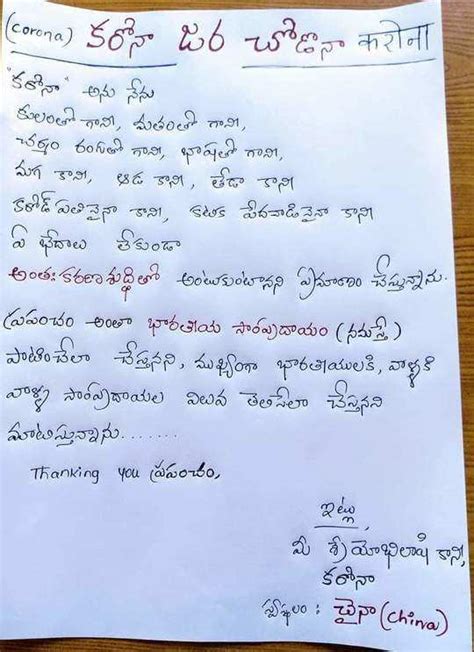 (corona) కరోనా జర చోడోనా करोना
"కరోనా" అను నేను
కులంతో గాని, మతంతో గాని,
చర్మం రంగుతో గాని, భాషతో గాని,
మగ కాని, ఆడ కాని, తేడా కాని
కరోడ్ పతినైనా కాని, కటిక పేదవాడినైనా కాని
ఏ భేదాలు లేకుండా
అంతఃకరణశుద్ధితో అంటుకుంటానని ప్రమాణం చేస్తున్నాను.
ప్రపంచం అంతా భారతీయ సాంప్రదాయం (నమస్తే)
పాటించేలా చేస్తానని, ముఖ్యంగా భారతీయులకి, వాళ్ళకి
వాళ్ళ సాంప్రదాయాల విలువ తెలిసేలా చేస్తానని
మాటిస్తున్నాను.......
Thanking you ప్రపంచం,
ఇట్లు,
మీ శ్రేయోభిలాషి కాని,
కరోనా
స్వస్థలం : చైనా (China)